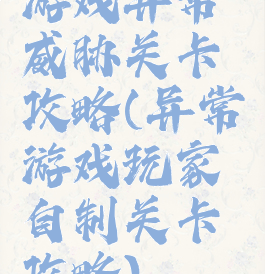 游戏异常
威胁关卡
攻略(异常
游戏玩家
自制关卡
攻略)